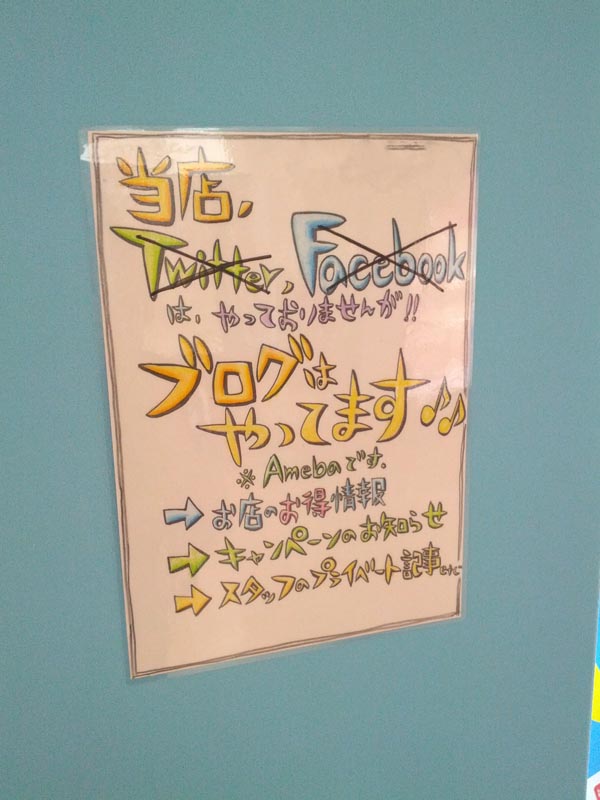 当店、
Twitter, Facebook
は、やっておりませんが!!
ブログは
やってます♪♫
※Amebaです。
➡お店のお得情報
➡キャンペーンのお知らせ
➡スタッフのプライベート記事etc…